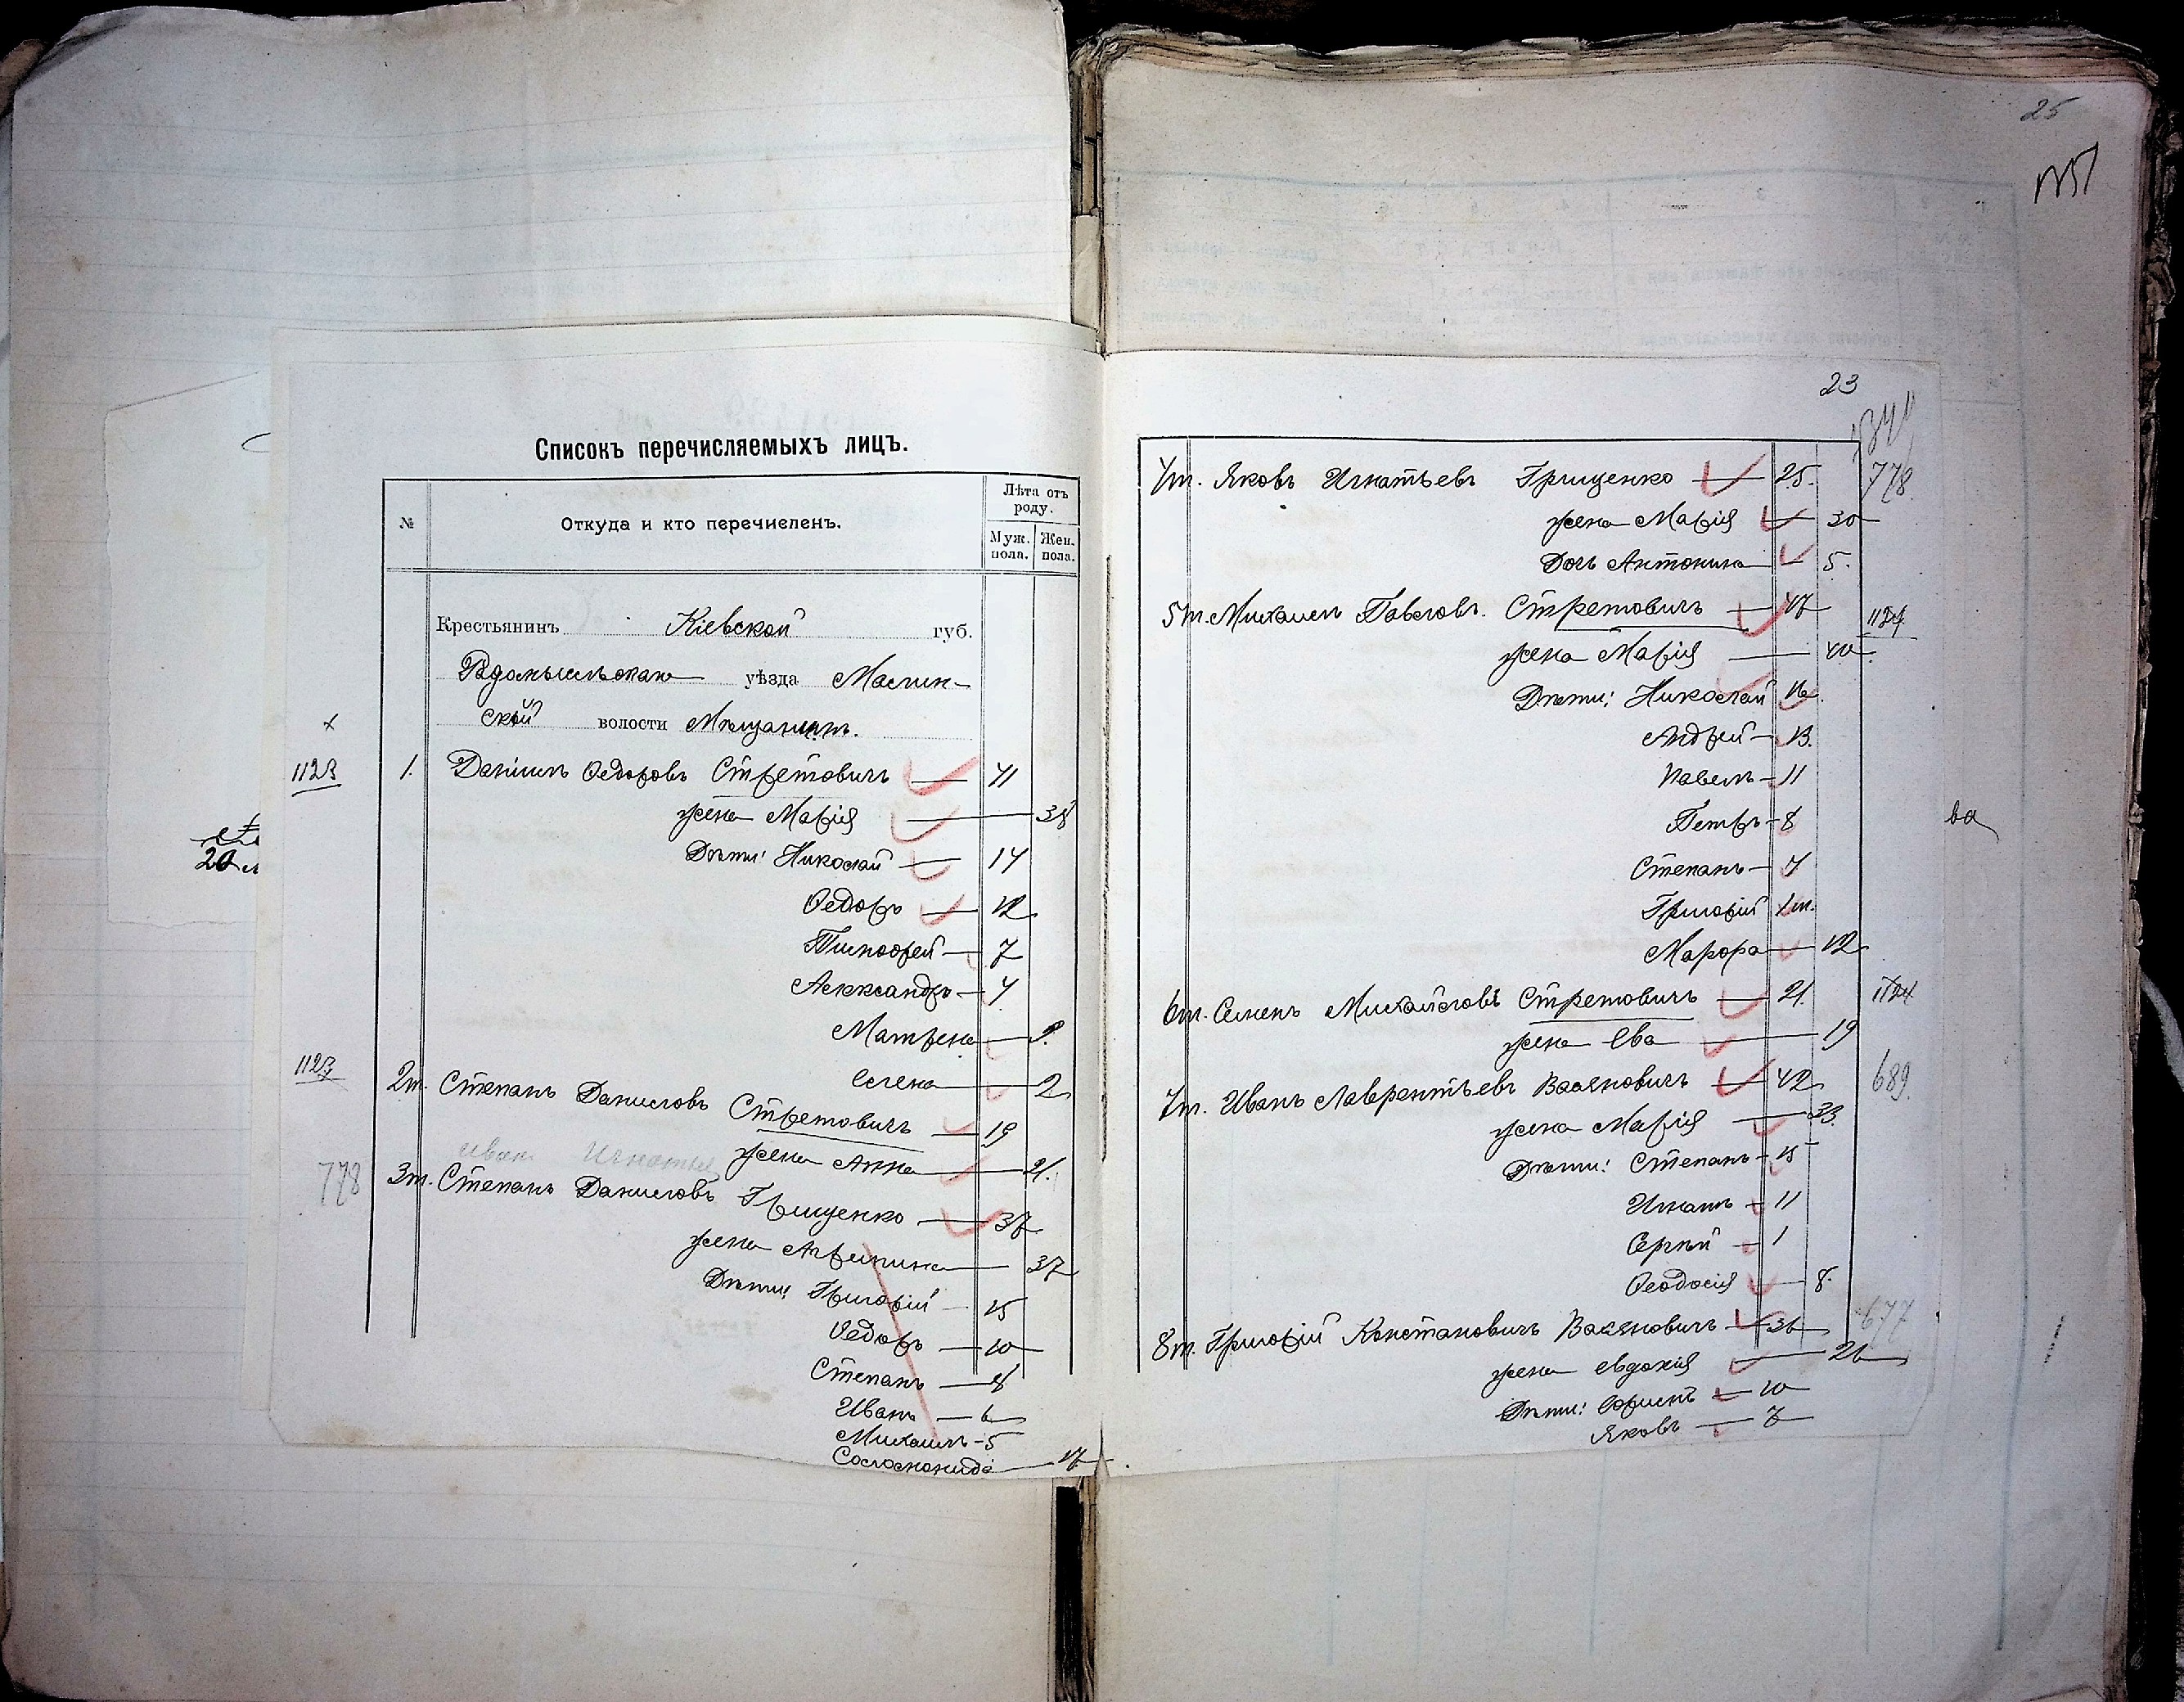 Списокъ перечисляемыхъ лицъ.
№
Откуда и кто перечисленъ.
Лѣта отъ роду.
Муж. пола.
Жен. пола.
Крестьянинъ Кіевской губ.
уѣзда Маслин-
ской волости Мѣщанинъ.
1123 1. Даніилъ Ѳедоровъ Стретовичъ — 41
жена Марія — 38
Дѣти: Николай — 14
Ѳедоръ — 12
Тимофей — 7
Александръ — 4
Матрена — 9.
Елена — 2
1123 2т. Степанъ Даниловъ Стретовичъ — 19
жена Анна — 21.
иван Игнатьев
778 3т. Степанъ Даниловъ Грищенко — 37
жена Агрипина — 37
Дѣти: Григорій — 15
Ѳедоръ — 10
Степанъ — 8
Иванъ — 6
Михаилъ — 5
Соломонида — 17
20
25
23
778
4т. Яковъ Игнатьевъ Грищенко — 25.
жена Марія — 30
Дочь Антонина — 5.
5т. Михаилъ Павловъ. Стретовичъ — 47 1124
жена Марія — 40.
Дѣти: Николай 16.
Андрей — 13.
Павелъ — 11
Петръ — 8
Степанъ — 4
Григорій 1 м.
— 12
6т. Семенъ Михайловъ Стретовичъ — 21. 1124
жена Ева — 19
7т. Иванъ Лаврентьевъ Васяновичъ — 42 689.
жена Марія — 33.
Дѣти: Степанъ — 15
Игнатъ — 11
Сергѣй — 1
Ѳеодосія — 8.
8т. Григорій Констановичъ Васяновичъ — 36 677
жена Евдокія — 26
Дѣти: — 10
Яковъ — 7
ва